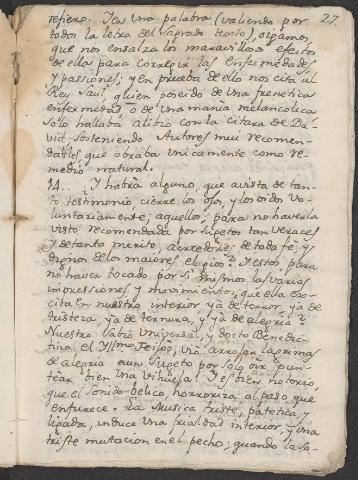 27
refiere. Y en una palabra (valiendo por
todos la letra del Sagrado texto), oigamos,
que nos ensalza los maravillosos efectos
de ella para corregir las enfermedades,
y passiones; y en prueba de ello nos cita al
Rey Saul, quien poseido de una frenetica
enfermedad, ò de una mania melancolica
Solo hallaba alibio con la citara de Da-
vid, sosteniendo Autores mui recomen-
dables, que obraba unicamente como re-
medio natural.
14.. Y habra alguno, que à vista de tan-
to testimonio, cierre los ojos, y los oidos vo-
luntariamente; aquellos, para no haverla
visto recomendada por sugetos tan veraces
y de tanto merito, acrehedores de toda fe, y
dignos de los maiores elogios? Y estos, para
no haver tocado por si mismos las varias
impressiones, y movimientos, que ella ex-
cita en nuestro interior, ya de terror, ya de
tristeza, ya de ternura, y ya de alegria?
Nuestro sabio Universal, y docto Benedic-
tino, el Yllmo Feijoò, viò arrojar lagrimas
de alegria à un sugeto por solo oir pun-
tear bien una vihuela. Y es bien notorio,
que el sonido belico, horroriza al paso, que
enfurece. La Musica triste, patetica, y
ligada, induce una frialdad interior, y una
triste mutacion en el pecho; quando la so-